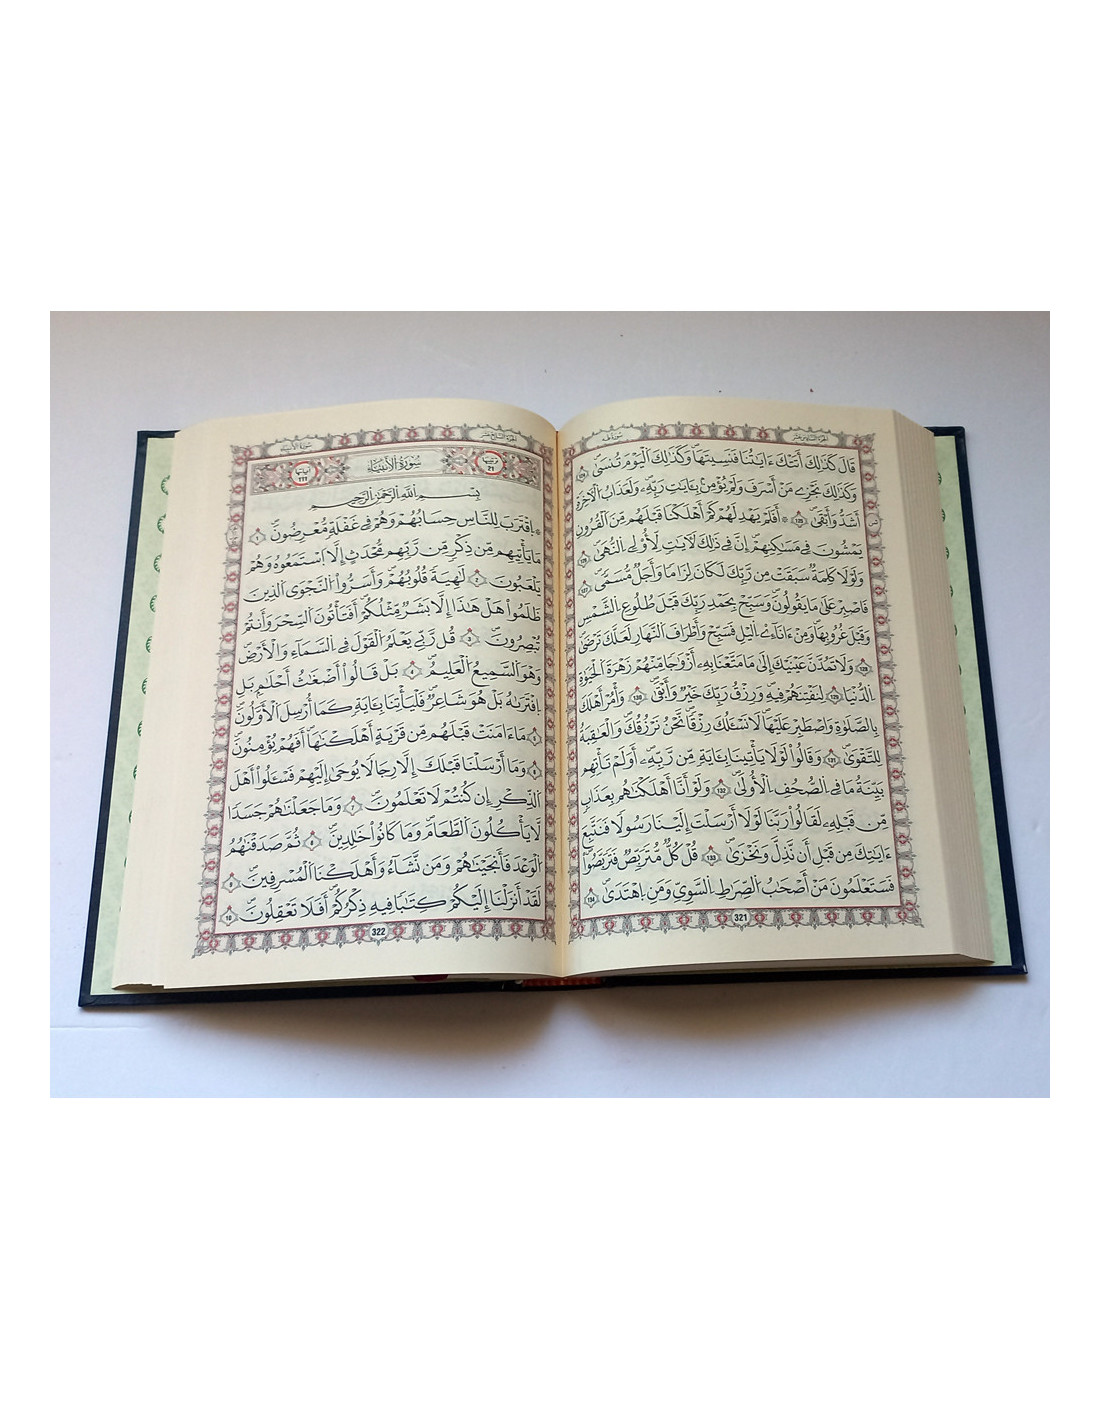 الجزء السادس عشر
سورة طه
قَالَ كَذَٰلِكَ أَتَتْكَ ءَايَٰتُنَا فَنَسِيتَهَا وَكَذَٰلِكَ اَلْيَوْمَ تُنسَىٰ
وَكَذَٰلِكَ نَجْزِے مَنْ أَسْرَفَ وَلَمْ يُؤْمِنۢ بِـَٔايَٰتِ رَبِّهِۦ وَلَعَذَابُ اُلْأَخِرَةِ
أَشَدُّ وَأَبْقَىٰٓ ۞ أَفَلَمْ يَهْدِ لَهُمْ كَمْ أَهْلَكْنَا قَبْلَهُم مِّنَ اَلْقُرُونِ
يَمْشُونَ فِے مَسَٰكِنِهِمْۖ إِنَّ فِے ذَٰلِكَ لَأٓيَٰتٍ لِّأُوْلِے اِلنُّهَىٰ
وَلَوْلَا كَلِمَةٌ سَبَقَتْ مِن رَّبِّكَ لَكَانَ لِزَامًا وَأَجَلٌ مُّسَمًّىۖ 127
فَاصْبِرْ عَلَىٰ مَا يَقُولُونَۖ وَسَبِّحْ بِحَمْدِ رَبِّكَ قَبْلَ طُلُوعِ اِلشَّمْسِ
وَقَبْلَ غُرُوبِهَا وَمِنْ ءَانَآءِےْ اِلَّيْلِ فَسَبِّحْ وَأَطْرَافَ اَلنَّهَارِ لَعَلَّكَ تَرْضَىٰ
128 وَلَا تَمُدَّنَّ عَيْنَيْكَ إِلَىٰ مَا مَتَّعْنَا بِهِۦٓ أَزْوَٰجًا مِّنْهُمْ زَهْرَةَ اَلْحَيَوٰةِ
اِلدُّنْيَا 129 لِنَفْتِنَهُمْ فِيهِۖ وَرِزْقُ رَبِّكَ خَيْرٌ وَأَبْقَىٰۖ 130 وَأْمُرْ أَهْلَكَ
بِالصَّلَوٰةِ وَاصْطَبِرْ عَلَيْهَاۖ لَا نَسْـَٔلُكَ رِزْقًاۖ نَّحْنُ نَرْزُقُكَۖ وَالْعَٰقِبَةُ
لِلتَّقْوَىٰۖ 131 وَقَالُواْ لَوْلَا يَأْتِينَا بِـَٔايَةٍ مِّن رَّبِّهِۦٓۖ أَوَلَمْ تَأْتِهِم
بَيِّنَةُ مَا فِے اِلصُّحُفِ اِلْأُولَىٰۖ 132 وَلَوْ أَنَّآ أَهْلَكْنَٰهُم بِعَذَابٍ
مِّن قَبْلِهِۦ لَقَالُواْ رَبَّنَا لَوْلَآ أَرْسَلْتَ إِلَيْنَا رَسُولًا فَنَتَّبِعَ
ءَايَٰتِكَ مِن قَبْلِ أَن نَّذِلَّ وَنَخْزَىٰۖ 133 قُلْ كُلٌّ مُّتَرَبِّصٌ فَتَرَبَّصُواْۖ
فَسَتَعْلَمُونَ مَنْ أَصْحَٰبُ اُلصِّرَٰطِ اِلسَّوِيِّ وَمَنِ اِهْتَدَىٰۖ 134
321
الجزء السابع عشر
سورة الأنبياء
رتبتها 21
سُورَةُ الأَنبِيَاءِ
آياتها 111
بِسْمِ اِللَّهِ اِلرَّحْمَٰنِ اِلرَّحِيمِ
۞ اِقْتَرَبَ لِلنَّاسِ حِسَابُهُمْ وَهُمْ فِے غَفْلَةٍ مُّعْرِضُونَۖ 1
مَا يَأْتِيهِم مِّن ذِكْرٍ مِّن رَّبِّهِم مُّحْدَثٍ إِلَّا اَسْتَمَعُوهُ وَهُمْ
يَلْعَبُونَ 2 لَٰهِيَةً قُلُوبُهُمْۖ وَأَسَرُّواْ اُلنَّجْوَى اَلذِينَ
ظَلَمُواْ هَلْ هَٰذَآ إِلَّا بَشَرٌ مِّثْلُكُمْۖ أَفَتَأْتُونَ اَلسِّحْرَ وَأَنتُمْ
تُبْصِرُونَۖ 3 قُل رَّبِّے يَعْلَمُ اُلْقَوْلَ فِے اِلسَّمَآءِ وَالْأَرْضِۖ
وَهُوَ اَلسَّمِيعُ اُلْعَلِيمُۖ 4 بَلْ قَالُوٓاْ أَضْغَٰثُ أَحْلَٰمٍ بَلِ
اِفْتَرَىٰهُ بَلْ هُوَ شَاعِرٌۖ فَلْيَأْتِنَا بِـَٔايَةٍ كَمَآ أُرْسِلَ اَلْأَوَّلُونَۖ
5 مَآ ءَامَنَتْ قَبْلَهُم مِّن قَرْيَةٍ أَهْلَكْنَٰهَآ أَفَهُمْ يُؤْمِنُونَۖ
6 وَمَآ أَرْسَلْنَا قَبْلَكَ إِلَّا رِجَالًا يُوحَىٰٓ إِلَيْهِمْ فَسْـَٔلُوٓاْ أَهْلَ
اَلذِّكْرِ إِن كُنتُمْ لَا تَعْلَمُونَۖ 7 وَمَا جَعَلْنَٰهُمْ جَسَدًا
لَّا يَأْكُلُونَ اَلطَّعَامَۖ وَمَا كَانُواْ خَٰلِدِينَۖ 8 ثُمَّ صَدَقْنَٰهُمُ
اُلْوَعْدَ فَأَنجَيْنَٰهُمْ وَمَن نَّشَآءُ وَأَهْلَكْنَا اَلْمُسْرِفِينَۖ 9
لَقَدْ أَنزَلْنَآ إِلَيْكُمْ كِتَٰبًا فِيهِ ذِكْرُكُمْۖ أَفَلَا تَعْقِلُونَۖ 10
322